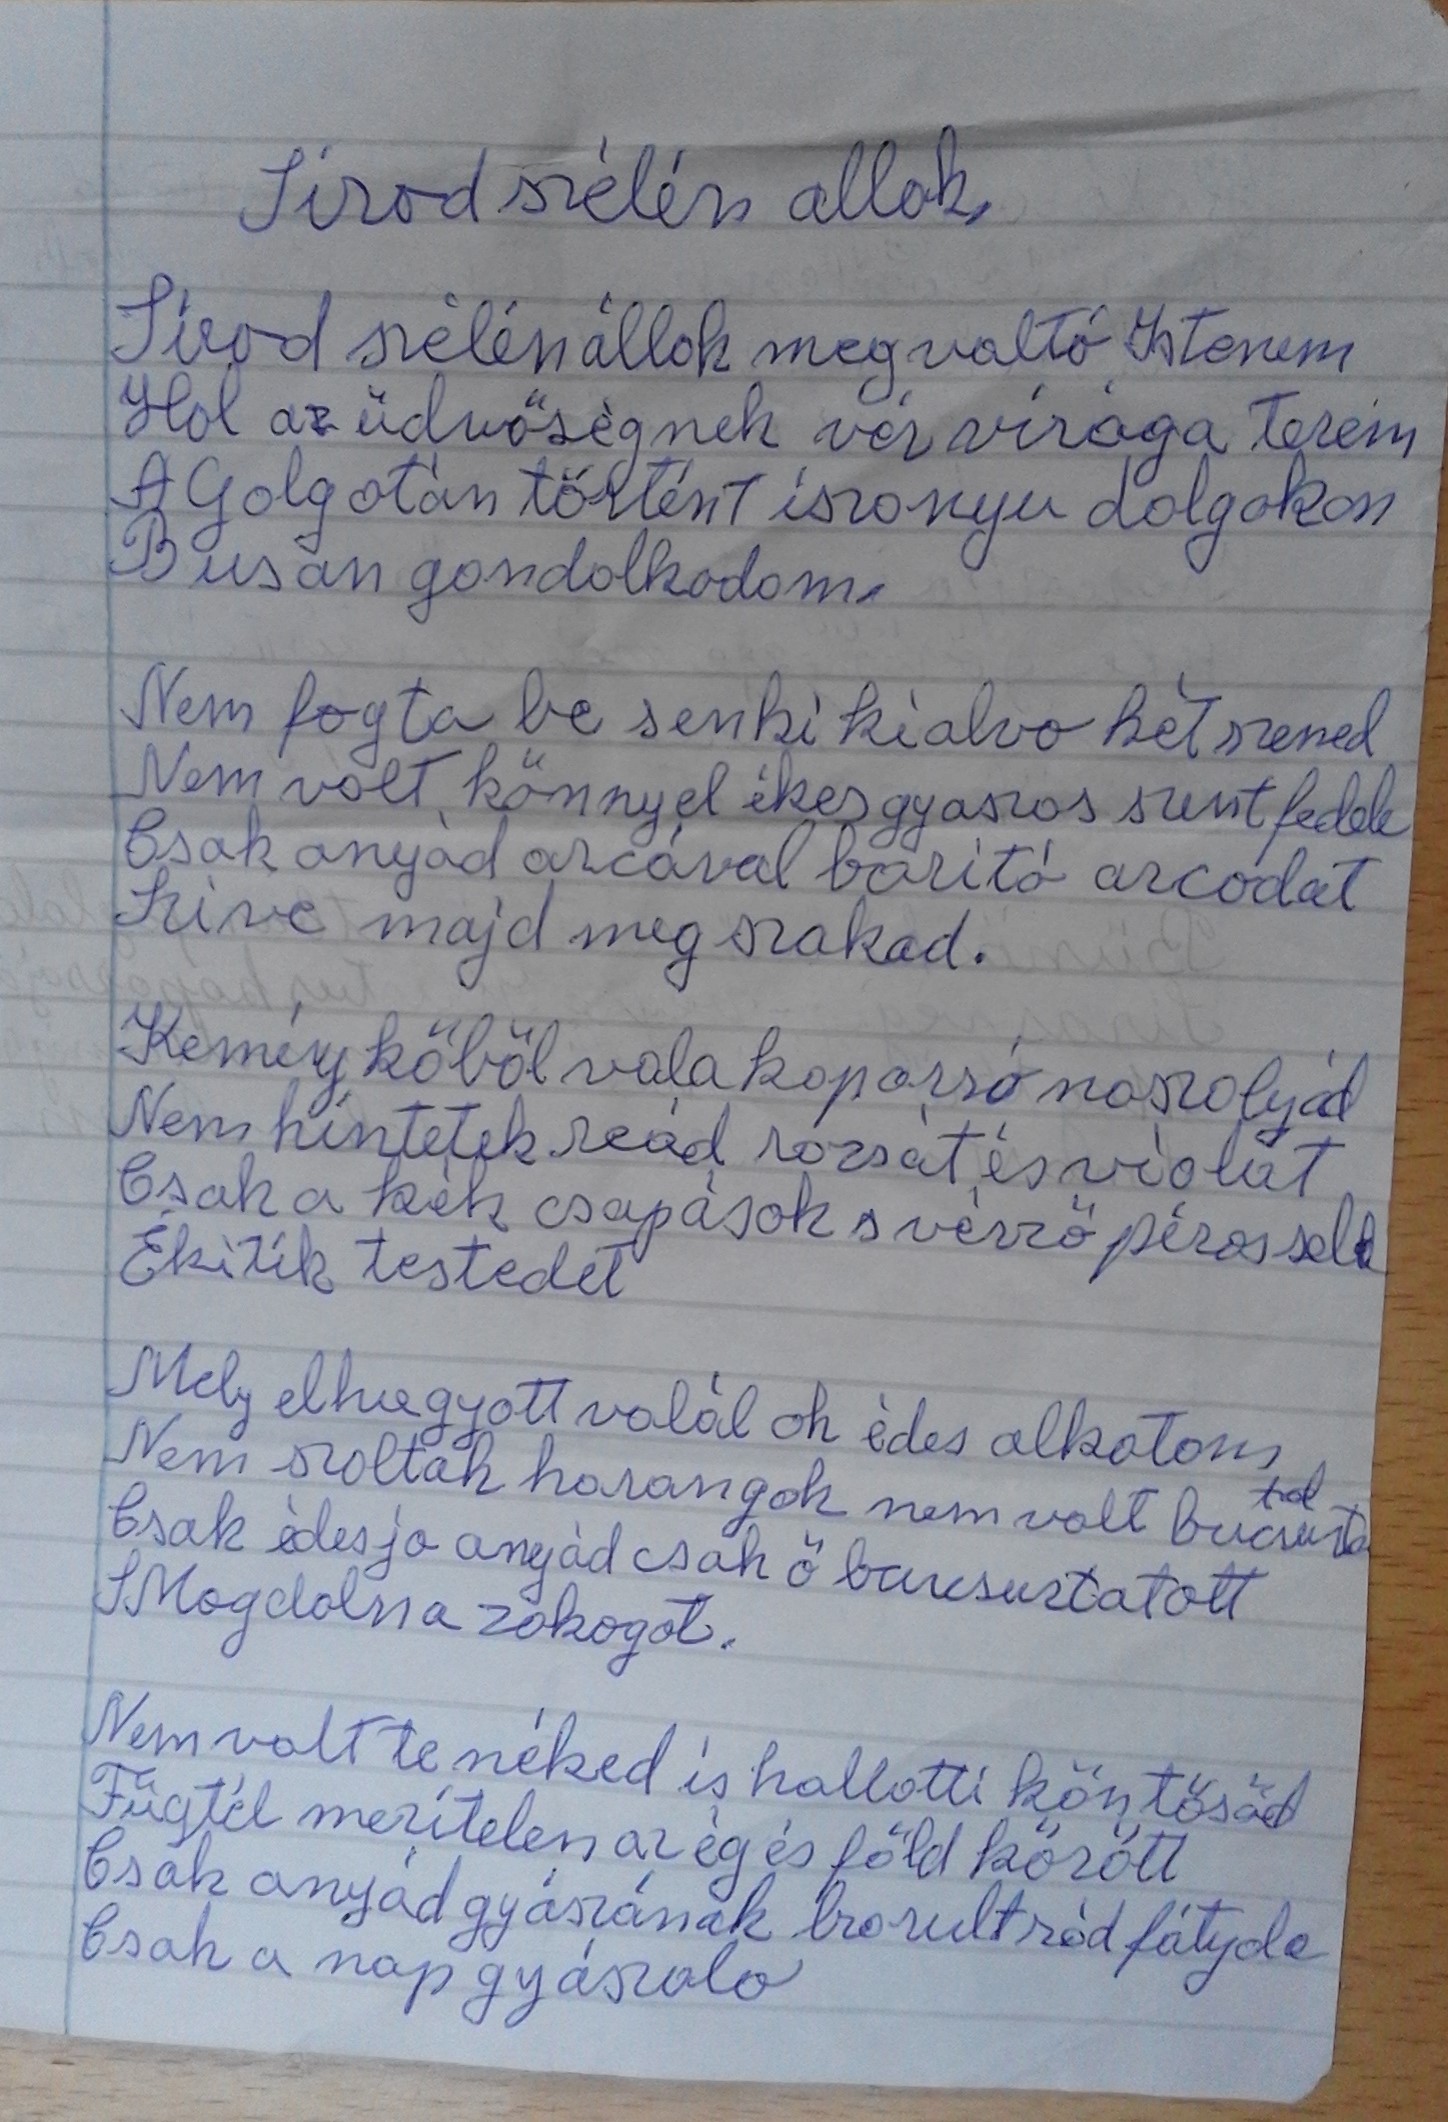 Sírod szélén allok.
Sírod szélén állok megvaltó Istenem
Hol az üdvőségnek vér virága terem
A Golgotán történt iszonyu dolgokon
Busan gondolkodom.
Nem fogta be senki kialvo két szemed
Nem volt könnyel ékes gyaszos szent fedele
Csak anyád arcával borító arcodat
Szive majd meg szakad.
Kemény kőből vala koporsó noszolyád
Nem hintetek reád rozsát és violát
Csak a kék csapások s vérző píros seb
Ékitík testedet
Mely elhagyott valál oh édes alkotom
Nem szoltak harangok nem volt bucsuztatod
Csak édes jo anyád csak ő bucsuztatott
S Magdolna zokogot.
Nem volt te néked is hallotti köntösöd
Fügtél merítelen az ég és föld között
Csak anyád gyászának borult rád fátyola
Csak a nap gyászolo